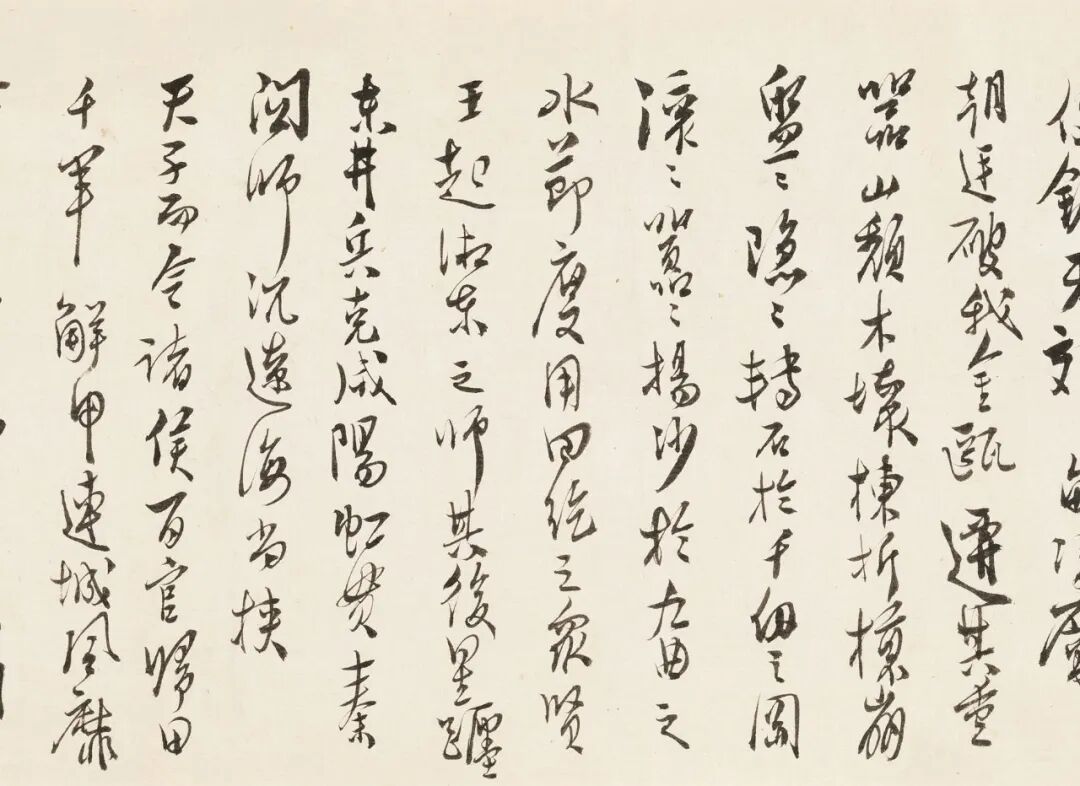 天
朝廷破我金甌遷其重
器山頹木壞棟折榱崩
盤〻隱〻轉石於千仞之岡
滾〻囂〻揚沙於九曲之
水節度用回紇之眾賢
王起湘東之師其後星躔
東井兵克咸陽虹貫秦
関師沉遼海尚挾
天子而令諸侯百官歸田
千軍解甲連城風靡